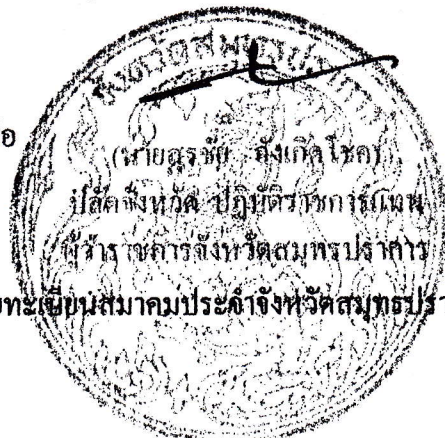 จังหวัดสมุทรปราการ
(นายสุรชัย ขังเกิดโชค)
ปลัดจังหวัด ปฏิบัติราชการแทน
ผู้ว่าราชการจังหวัดสมุทรปราการ
ทะเบียนสมาคมประจำจังหวัดสมุทรปรา